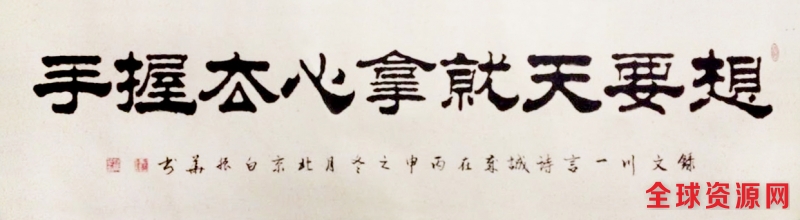 想要天就拿心去握手
錄文川一言詩城東在丙申之冬月北京白振華书
全球资源网